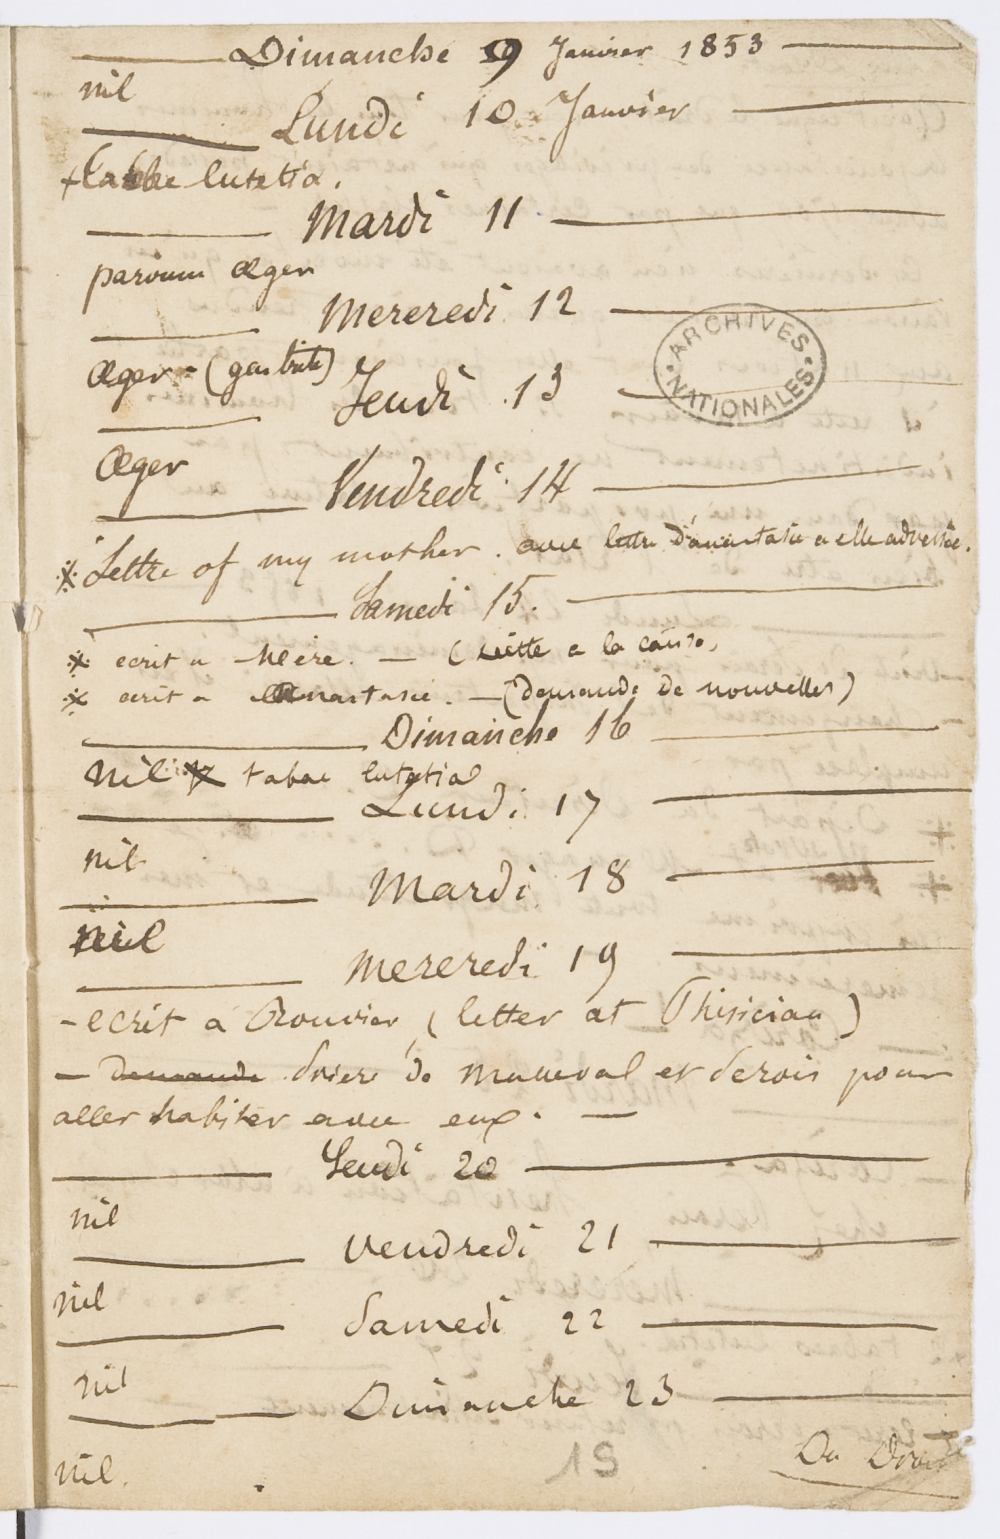 Dimanche 9 Janvier 1853
nil
Lundi 10 Janvier
lutetia.
Mardi 11
parvum æger
Mercredi 12
ARCHIVES NATIONALES
æger - (gastrite)
Jeudi 13
Æger
Vendredi 14
Lettre of my mother. avec lettre d'anastasie a elle adressée.
Samedi 15.
ecrit a Mère. — ( a la caisse,
ecrit a anastasie. — (demande de nouvelles)
Dimanche 16
nil tabac lutetia
Lundi 17
nil
Mardi 18
nil
Mercredi 19
- ecrit a Rouvier (letter at Phisician)
— demande de Manneval et pour
aller habiter avec eux. —
Jeudi 20
nil
Vendredi 21
nil
Samedi 22
nil
Dimanche 23
nil.
19